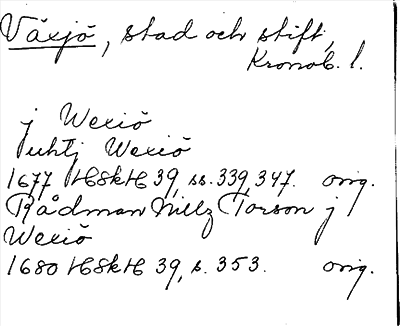 Växjö, stad och stift,
Kronob. l.
j Wexiö
uthj Wexiö
1677 HSkH 39, ss. 339, 347. orig.
Rådman Nillz Torson j
Wexiö
1680 HSkH 39, s. 353. orig.